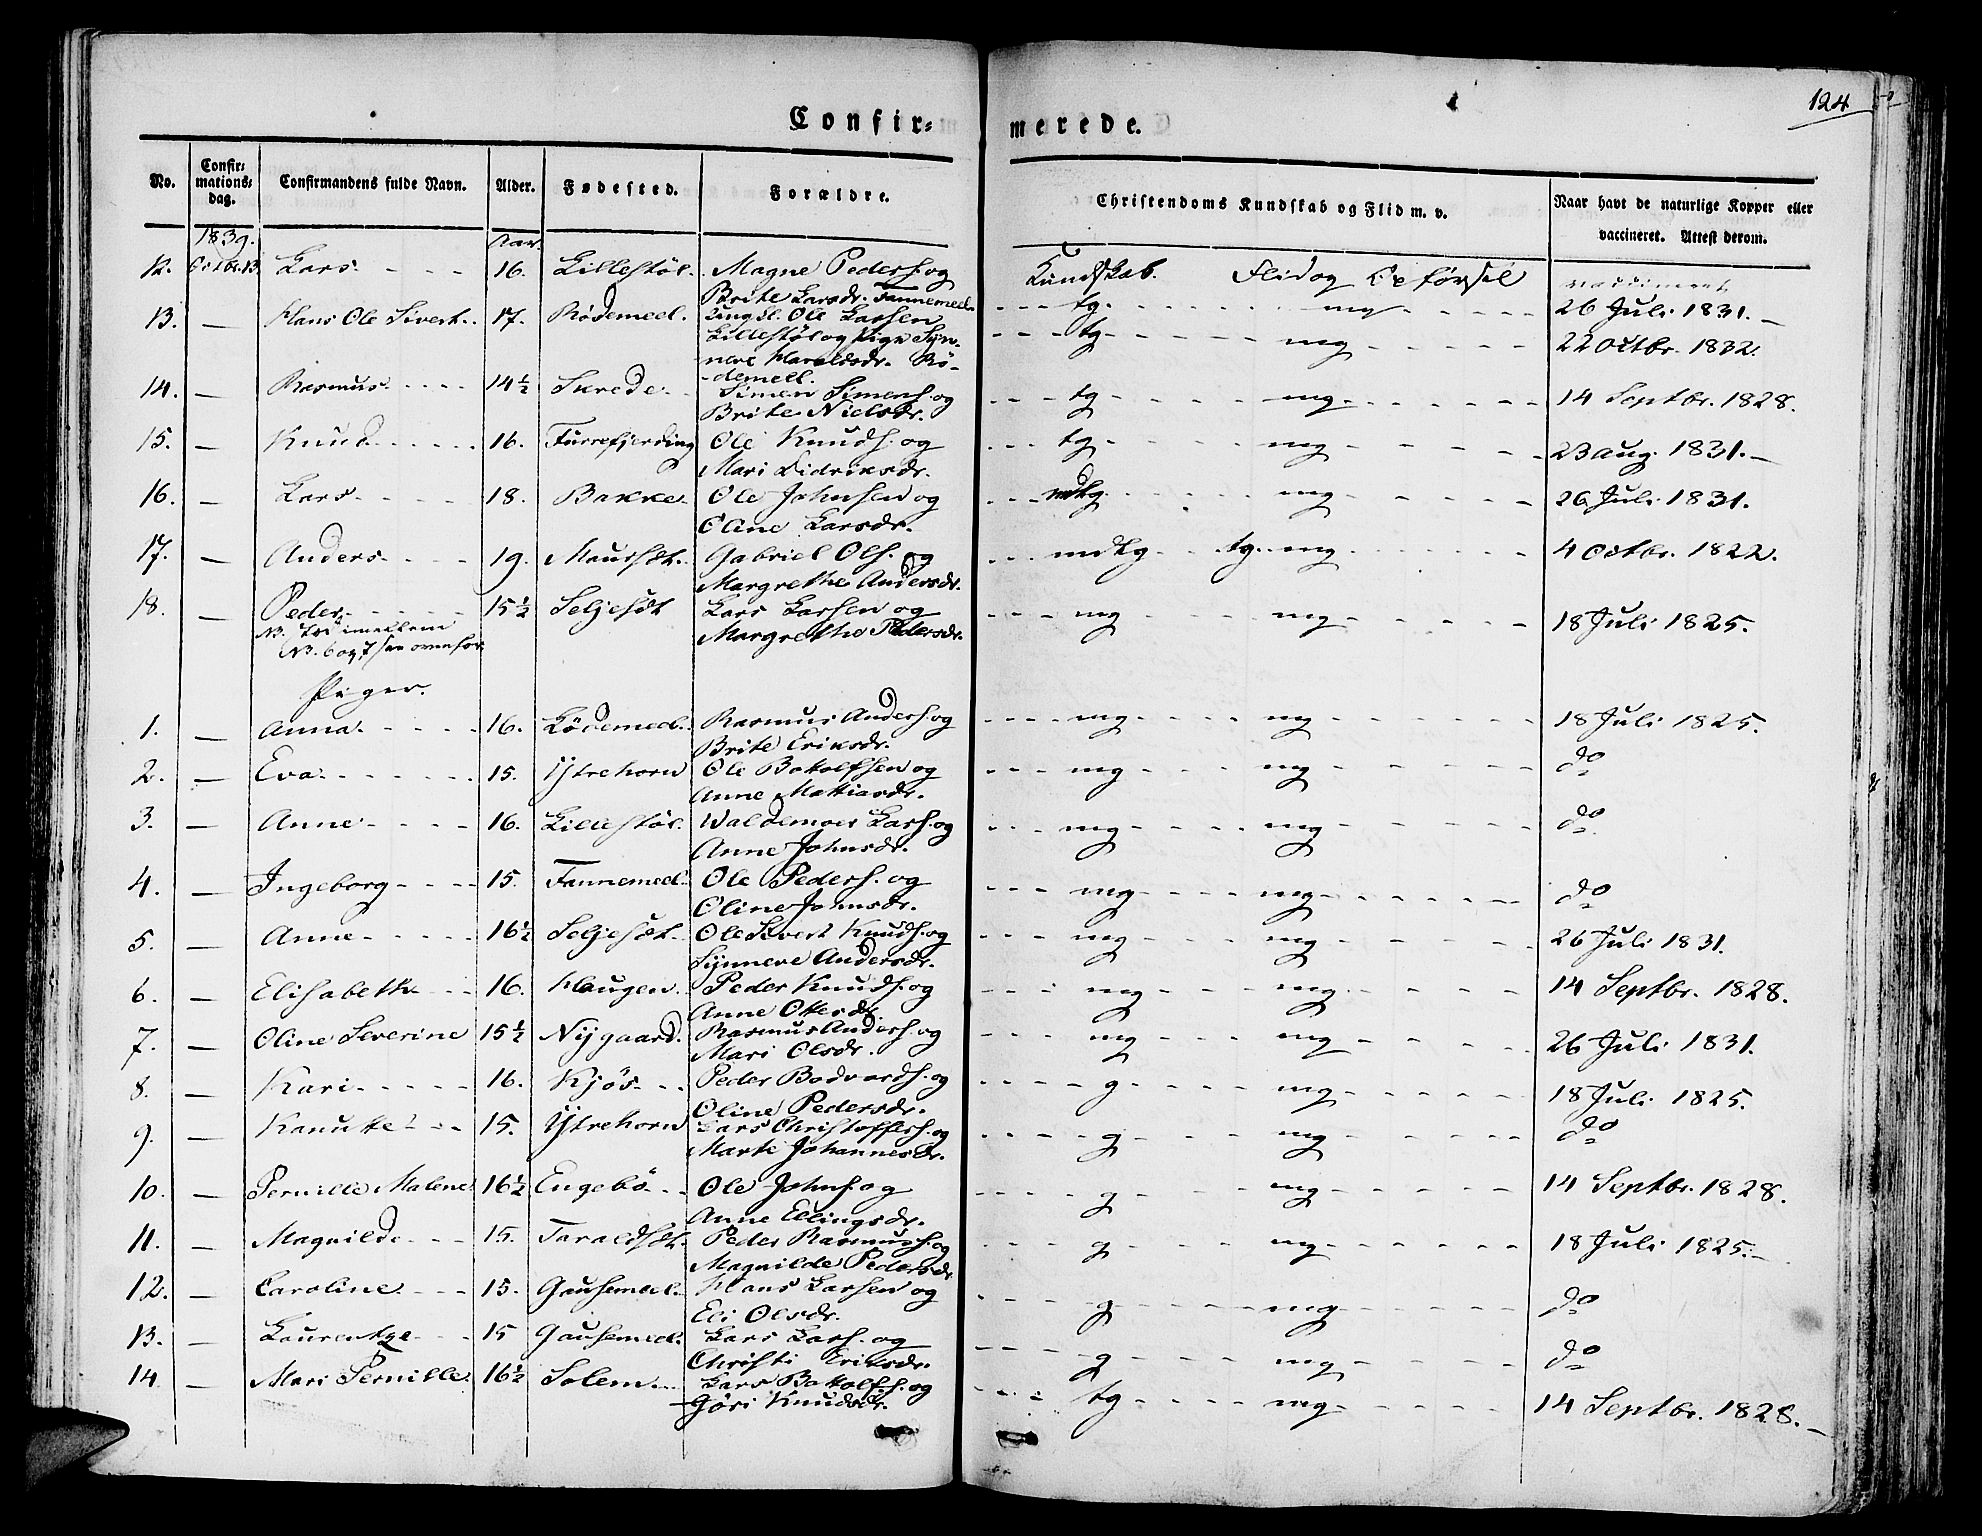 124
Confir-
merede.
No.
Confir-
mations-
dag.
Confirmandens fulde Navn.
Alder.
Fødested.
Forældre.
Christendoms Kundskab og Flid m. v.
Naar havt de naturlige Kopper eller
vaccineret. Attest derom.
1839.
12. Octbr. 13. Lars 16. Lillestöl. Magne Peders. og
Brite Larsdr. Fannemeel.
Kundskab. Flid og Opförsel
vaccineret
tg. mg 26 Juli 1831.
13. — Hans Ole Sivert. 17. Rödemeel. Ungkl. Ole Larsen
Lillestöl og Pige Syn-
neve Haraldsdr. Rö-
demeel.
tg mg 22 Octbr. 1832.
14. — Rasmus 14½ Skrede. Simen Simens. og
Brite Nielsdr.
tg mg 14 Septbr. 1828.
15. — Knud 16. Furrefjerding Ole Knuds. og
Mari Didriksdr.
tg mg 23 aug. 1831.
16. — Lars 18. Bakke. Ole Johnsen og
Oline Larsdr.
mdtg mg 26 Juli 1831.
17. — Anders 19. Maursæt. Gabriel Ols. og
Margrethe Andersdr.
mdtg tg. mg 4 Octbr. 1822.
18. — Peder 15½ Seljesæt Lars Larsen og
Margrethe Pedersdr.
mg mg 18 Juli 1825.
N. imellem
N. 6 og 7 ovenfor.
Piger.
1. — Anna 16. Lödemeel. Rasmus Anders. og
Brite Eriksdr.
mg mg 18 Juli 1825.
2. — Eva 15. Ytrehorn Ole Botolfsen og
Anne Mattiasdr.
mg mg do
3. — Anne 16. Lillestöl. Waldemoer Lars. og
Anne Johnsdr.
mg mg do
4. — Ingeborg 15. Fannemeel. Ole Peders. og
Oline Johnsdr.
mg mg do
5. — Anne 16½ Seljesæt. Ole Sivert Knuds. og
Synneve Andersdr.
mg mg 26 Juli 1831.
6. — Elisabeth 16. Haugen. Peder Knuds. og
Anne Ottesdr.
mg mg 14 Septbr. 1828.
7. — Oline Severine 15½ Nygaard. Rasmus Anders. og
Mari Olsdr.
mg mg 26 Juli 1831.
8. Kari 16. Kjös Peder Bodvards. og
Oline Pedersdr.
g mg 18 Juli 1825.
9. — Kanutte 15. Ytrehorn Lars Christoffers. og
Marte Johannesdr.
g mg do
10. — Pernille Malene 16½ Engebö Ole Johns. og
Anne Ellingsdr.
g mg 14 Septbr. 1828.
11. — Magnilde 15. Taraldset. Peder Rasmus. og
Magnilde Pedersdr
g mg 18 Juli 1825.
12. — Caroline 15. Gausemeel. Hans Larsen og
Eli Olsdr.
g mg do
13. — Laurentze 15 Gausemeel. Lars Lars. og
Christi Eriksdr.
g mg do
14 — Mari Pernille. 16½ Solem Lars Botolfs. og
Göri Knudsdr.
tg mg 14 Septbr. 1828.